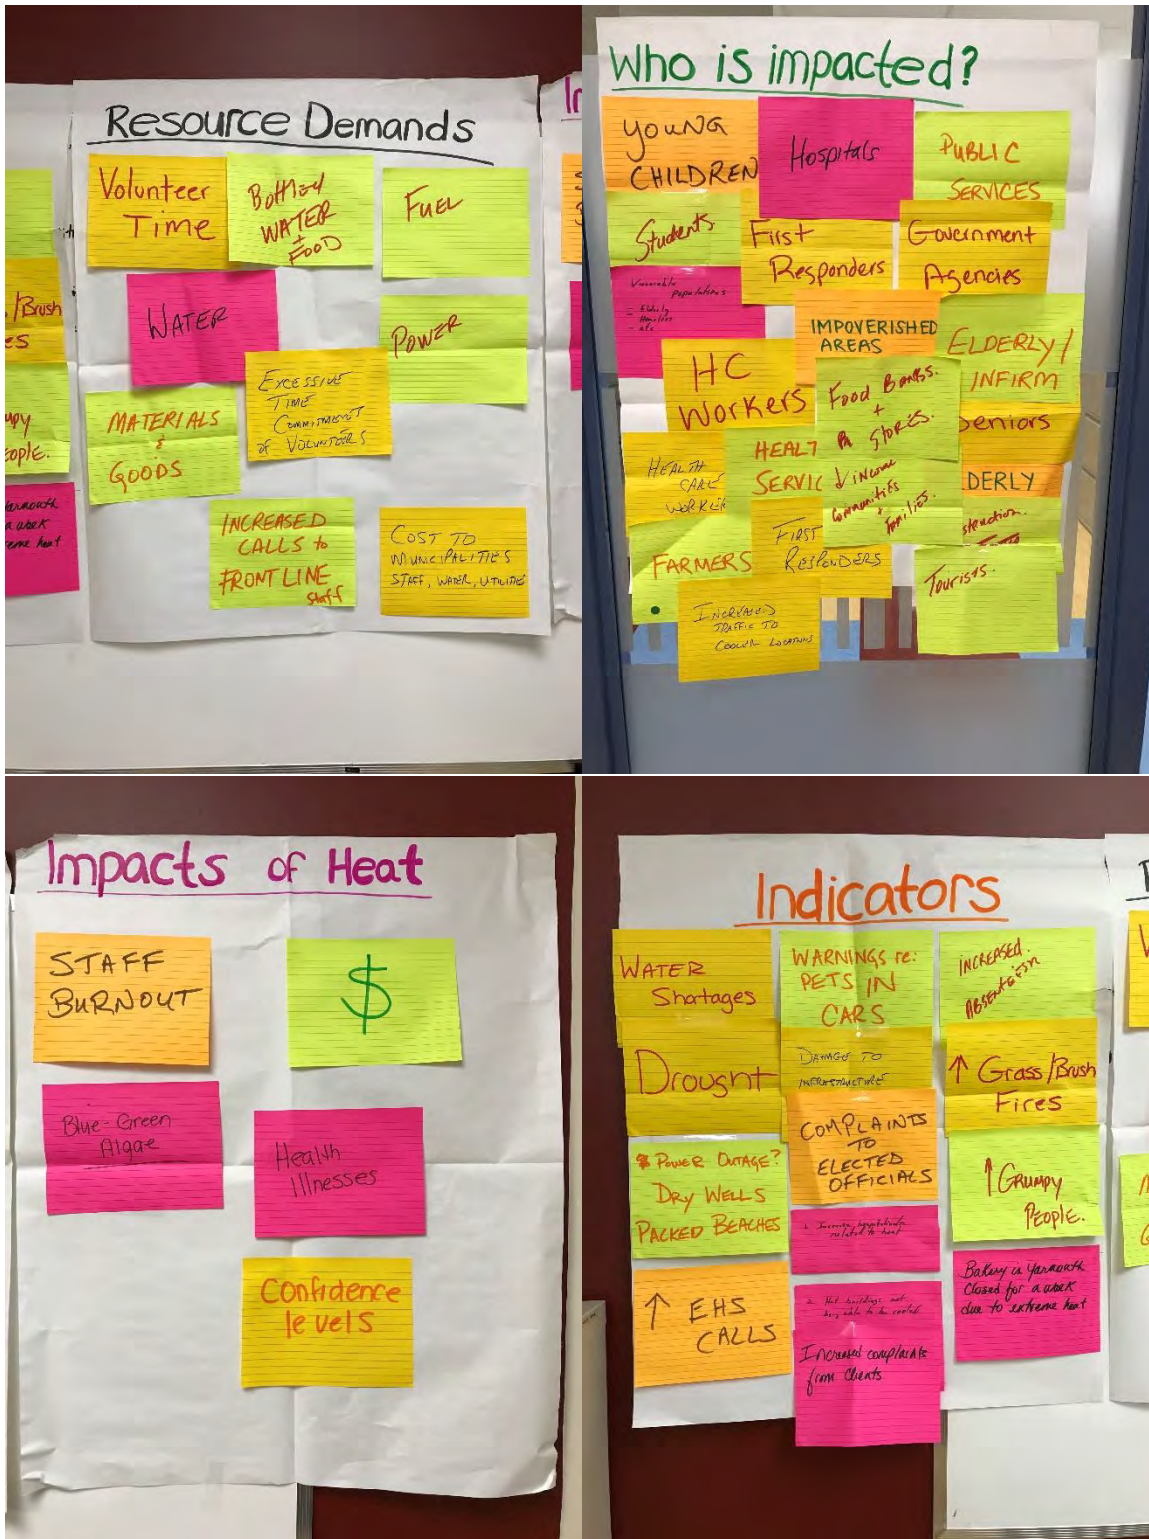 Resource Demands
Volunteer
Time
Bottled
WATER
+
FOOD
FUEL
WATER
POWER
EXCESSIVE
TIME
COMMITMENT
OF VOLUNTEERS
MATERIALS
&
GOODS
INCREASED
CALLS to
FRONT LINE
staff
COST TO
MUNICIPALITIES
STAFF, WATER, UTILITIES
/Brush
es
mpy
eople.
Yarmouth
a week
treme heat
In
Who is impacted?
YOUNG
CHILDREN
Hospitals
PUBLIC
SERVICES
Students
First
Responders
Government
Agencies
Vulnerable
populations
- Elderly
- Homeless
- etc
IMPOVERISHED
AREAS
ELDERLY/
INFIRM
HC
Workers
Food Banks.
+
STORES.
Seniors
HEALTH
CARE
WORKER
HEALT
SERVIC
↓ income
Communities
+
Families.
DERLY
struction
FARMERS
FIRST
RESPONDERS
Tourists.
INCREASED
TRAFFIC TO
COOLER LOCATIONS
Impacts of Heat
STAFF
BURNOUT
$
Blue-Green
Algae
Health
Illnesses
Confidence
levels
Indicators
WATER
Shortages
WARNINGS re:
PETS IN
CARS
INCREASED.
ABSENTEEISM
Drought
DAMAGE TO
INFRASTRUCTURE
↑ Grass/Brush
Fires
COMPLAINTS
TO
ELECTED
OFFICIALS
POWER OUTAGE?
DRY WELLS
PACKED BEACHES
↑ GRUMPY
PEOPLE.
1. Increase hospitalizations
related to heat
↑ EHS
CALLS
2. Hot buildings not
being able to be cooled
Increased complaints
from Clients
Bakery in Yarmouth
Closed for a week
due to extreme heat